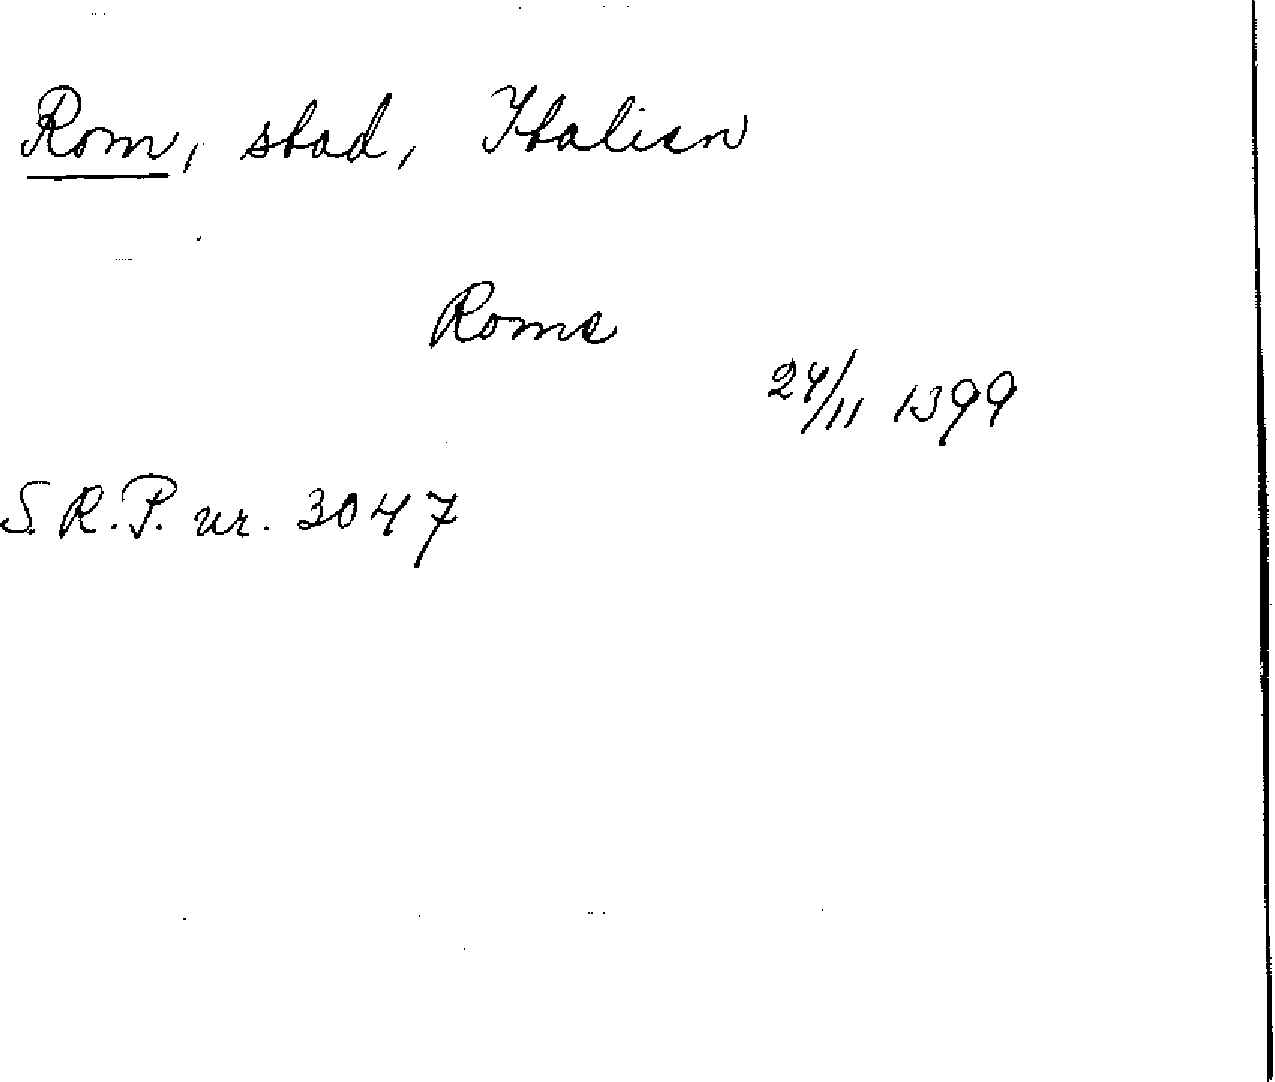 Rom, stad, Italien
Rome
24/11 1399
S.R.P. nr. 3047